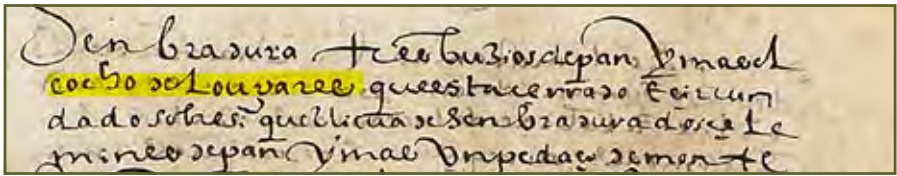 Senbradura tres buzios de pan Ymas el
cocho de Louvares que esta cerrado E circun
dado sobresi que llieua de Senbradura doss. fe
rrines de pan Ymas Un pedaço de monte